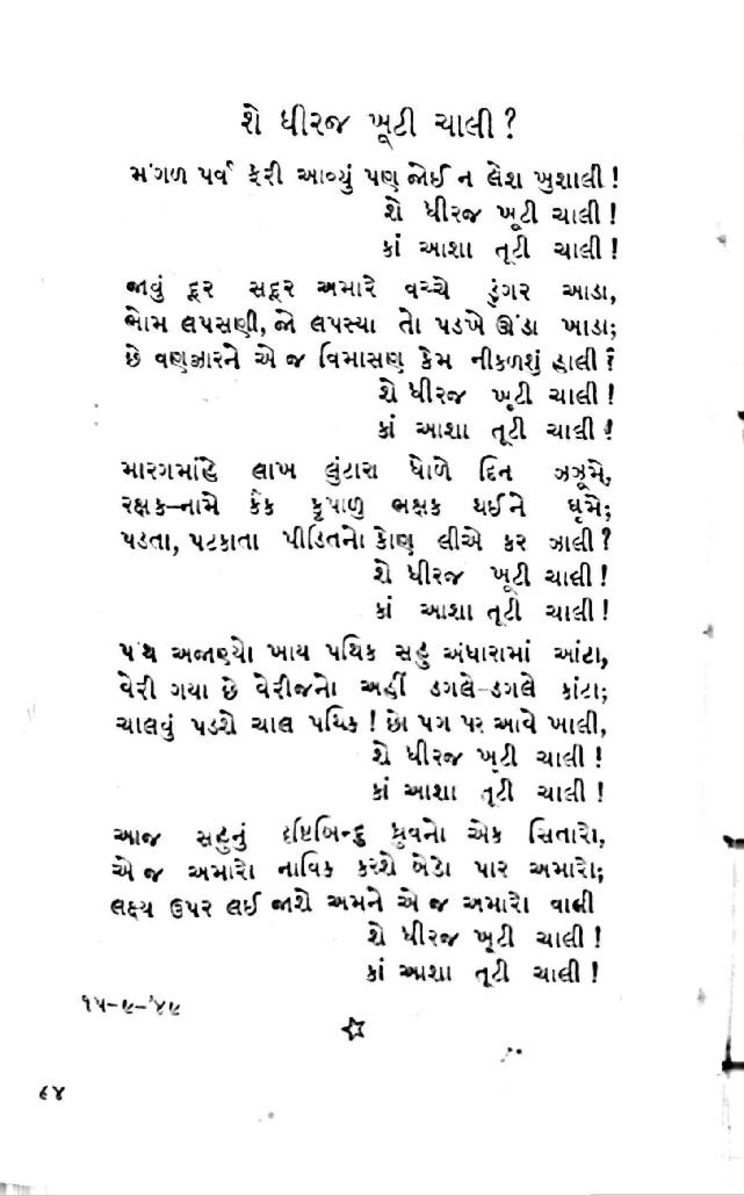 શે ધીરજ ખૂટી ચાલી ?
મંગળ પર્વ ફેરી આવ્યું પણ જોઈ ન લેશ ખુશાલી !
શે ધીરજ ખૂટી ચાલી !
કાં આશા તૂટી ચાલી !
જાવું દૂર સદૂર અમારે વચ્ચે ડુંગર આડા,
ભોમ લપસણી, જો લપસ્યા તો પડખે ઊંડા ખાડા;
છે વણઝારને એ જ વિમાસણ કેમ નીકળશું હાલી ?
શે ધીરજ ખૂટી ચાલી !
કાં આશા તૂટી ચાલી !
મારગમાંહે લાખ લુંટારા ધોળે દિન ઝઝૂમે,
રક્ષક-નામે કૈંક કૃપાળુ ભક્ષક થઈને ઘૂમે;
પડતા, પટકાતા પીડિતનો કોણ લીએ કર ઝાલી ?
શે ધીરજ ખૂટી ચાલી !
કાં આશા તૂટી ચાલી !
પંથ અજાણ્યો ખાય પથિક સહુ અંધારામાં આંટા,
વેરી ગયા છે વેરીજનો અહીં ડગલે-ડગલે કાંટા;
ચાલવું પડશે ચાલ પથિક ! છો પગ પર આવે ખાલી,
શે ધીરજ ખૂટી ચાલી !
કાં આશા તૂટી ચાલી !
આજ સહુનું દૃષ્ટિબિન્દુ ધ્રુવનો એક સિતારો,
એ જ અમારો નાવિક કરશે બેડો પાર અમારો;
લક્ષ્ય ઉપર લઈ જાશે અમને એ જ અમારો વાલી
શે ધીરજ ખૂટી ચાલી !
કાં આશા તૂટી ચાલી !
૧૫-૯-'૪૯
૯૪